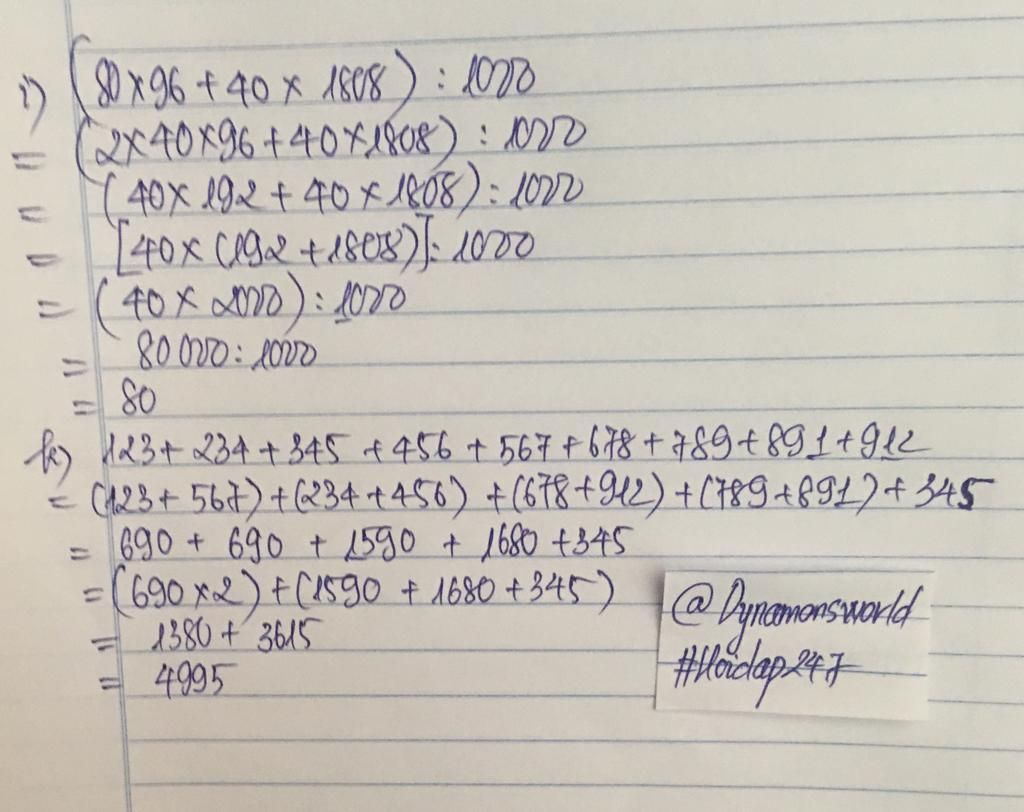 i) (80 × 96 + 40 × 1808) : 1000
= (2 × 40 × 96 + 40 × 1808) : 1000
= (40 × 192 + 40 × 1808) : 1000
= [40 × (192 + 1808)] : 1000
= (40 × 2000) : 1000
= 80000 : 1000
= 80
k) 123 + 234 + 345 + 456 + 567 + 678 + 789 + 891 + 912
= (123 + 567) + (234 + 456) + (678 + 912) + (789 + 891) + 345
= 690 + 690 + 1590 + 1680 + 345
= (690 × 2) + (1590 + 1680 + 345)
= 1380 + 3615
= 4995
@Dynamonsworld
#Hoidap247